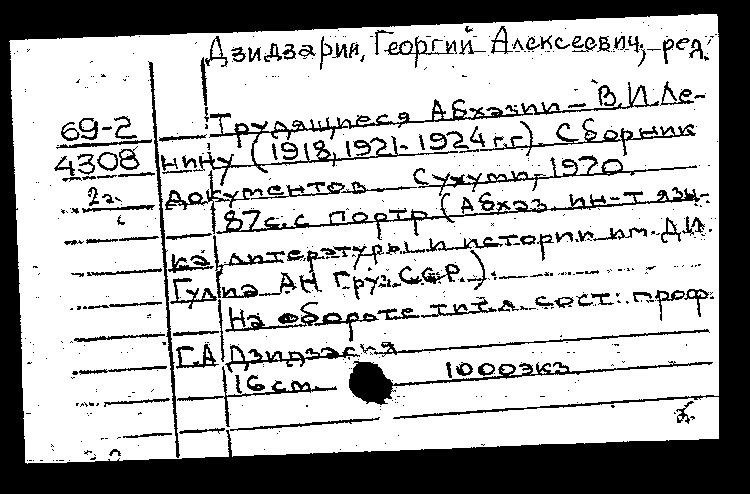 Дзидзария, Георгий Алексеевич, ред.
69-2 Трудящиеся Абхазии – В.И. Ле-
4308 нину (1918, 1921-1924 г.г.). Сборник
2г. документов. Сухуми, 1970.
87с. с портр. (Абхаз. ин-т язы-
ка, литературы и истории им. Д.И.
Гулиа АН Груз.ССР).
На обороте тит.л. сост.: проф.
Г.А. Дзидзария
16 см. 1000экз.